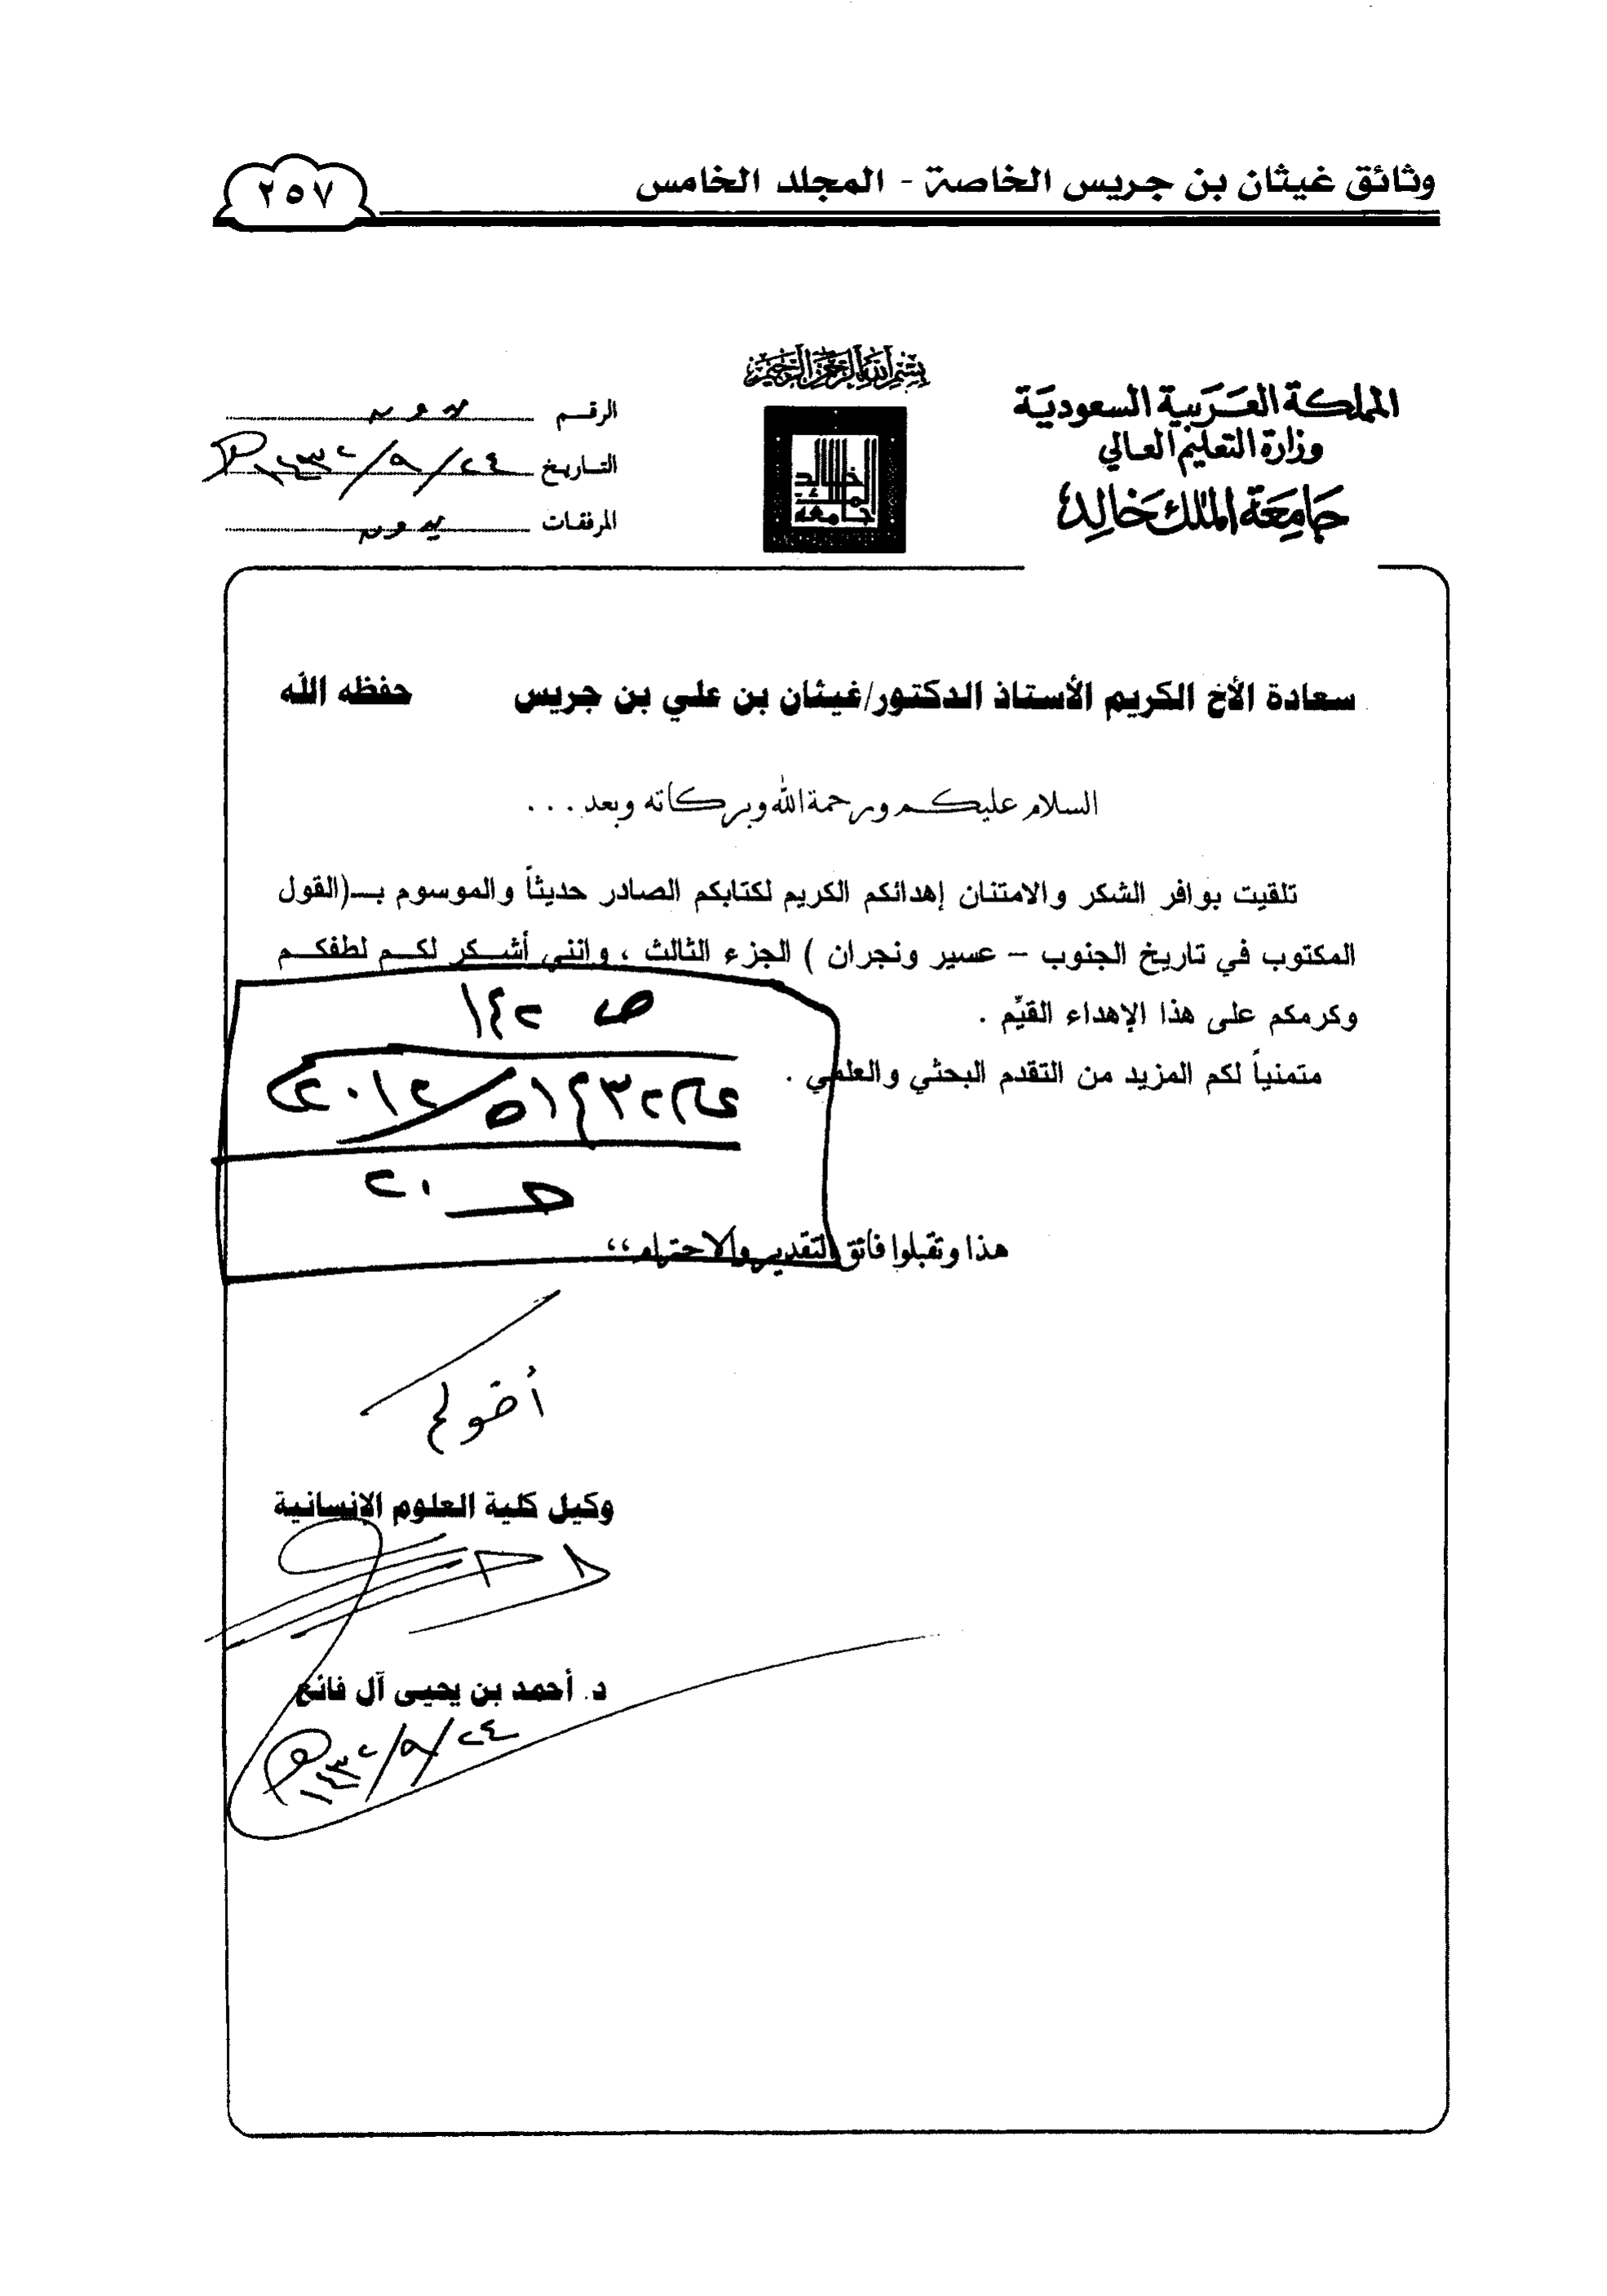 وثائق غيثان بن جريس الخاصة - المجلد الخامس
٢٥٧
بسم الله الرحمن الرحيم
المملكة العربية السعودية
وزارة التعليم العالي
جامعة الملك خالد
جامعة الملك خالد
الرقم بدون
التاريخ ٢٤/٩/١٤٣٢هـ
المرفقات بدون
سعادة الأخ الكريم الأستاذ الدكتور/غيثان بن علي بن جريس حفظه الله
السلام عليكم ورحمة الله وبركاته وبعد...
تلقيت بوافر الشكر والامتنان إهدائكم الكريم لكتابكم الصادر حديثاً والموسوم بـ(القول
المكتوب في تاريخ الجنوب – عسير ونجران ) الجزء الثالث ، وانني أشكر لكم لطفكم
وكرمكم على هذا الإهداء القيِّم .
متمنياً لكم المزيد من التقدم البحثي والعلمي .
ص ١٤٢
هذا وتقبلوا فائق التقدير والاحترام،،
أخوكم
وكيل كلية العلوم الإنسانية
د. أحمد بن يحيى آل فائع
٢٤/٩/١٤٣٢هـ